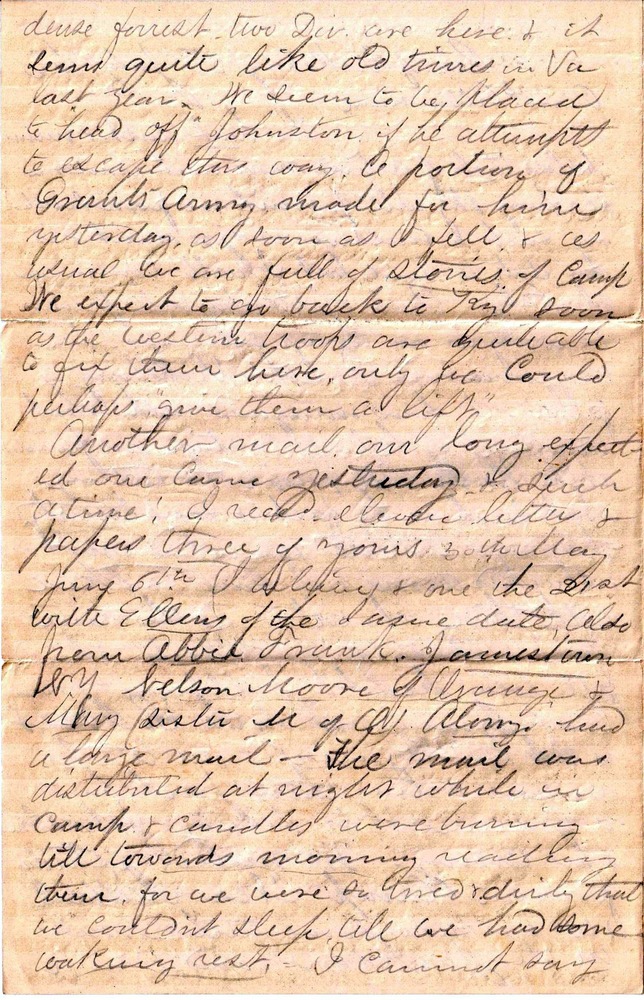 dense forrest. two Div. are here & it
sems quite like old times in Va
last year. We seem to be placed
to head off Johnston if he attempts
to escape this way. A portion of
Grants Army made for him
yesterday, as soon as I fell, & as
usual we are full of stories of Camp
We expect to go back to Ky soon
as the Western troops are quite able
to fix them here, only we Could
perhaps "give them a lift"
Another mail our long expect-
ed one Came yesterday & Such
a time! I recd. eleven letters &
papers three of yours 30th May
June 6th I believe & one the 21st
with Ellens of the same date, Also
from Abbie, Frank. Jamestown
NY Nelson Moore of Orange &
Mary (Sister M of O) Alonzo had
a large mail — The mail was
distributed at night while in
Camp & Candles were burning
till towards morning reading
them, for we were so tired & dirty that
we couldnt sleep till we had some
waking rest. — I cannot say